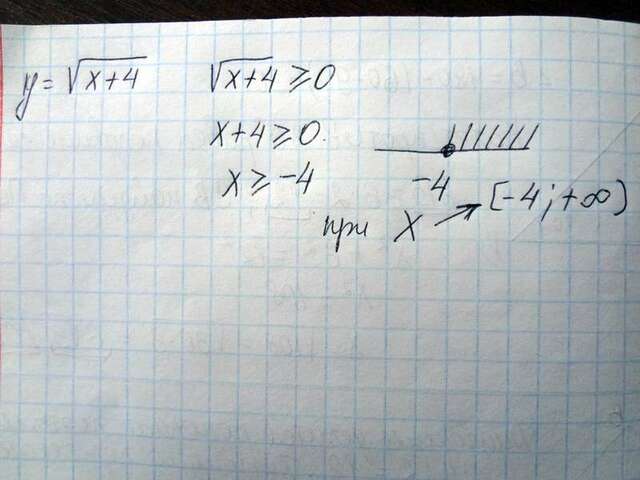 y = √(x+4) √(x+4) ≥ 0
x+4 ≥ 0.
x ≥ -4 -4
при x → [-4; +∞)